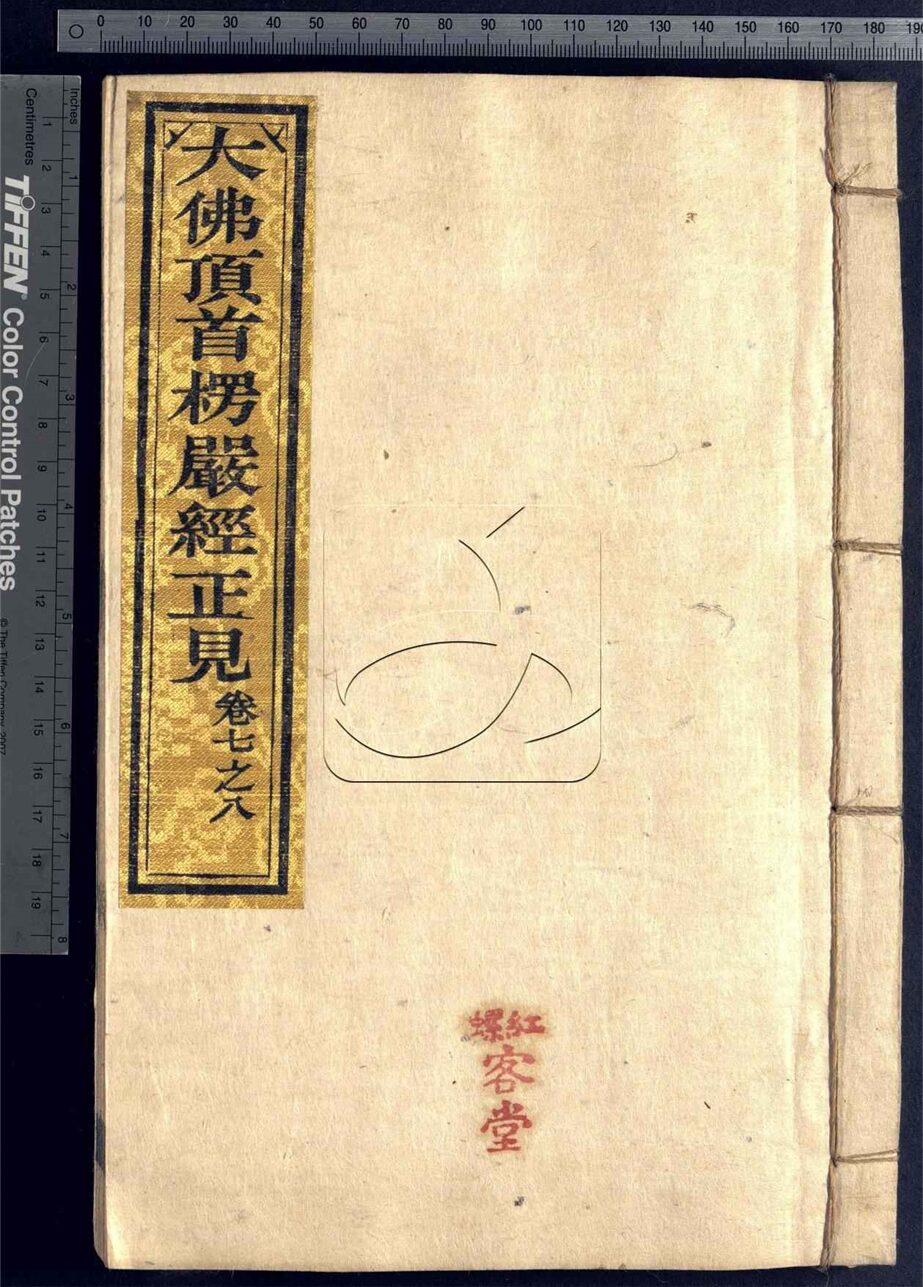 0 10 20 30 40 50 60 70 80 90 100 110 120 130 140 150 160 170 180
大佛頂首楞嚴經正見 卷七之八
紅螺
客堂
Inches
1 2 3 4 5 6 7 8
Centimetres
1 2 3 4 5 6 7 8 9 10 11 12 13 14 15 16 17 18 19
TIFFEN® Color Control Patches
© The Tiffen Company, 2007